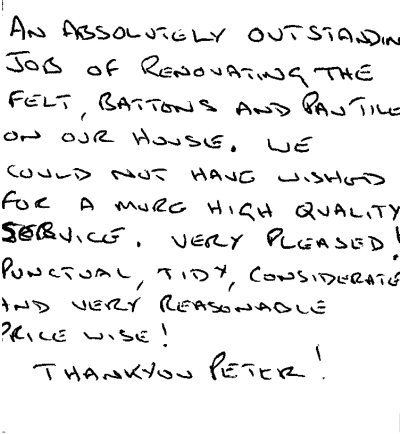 AN ABSOLUTELY OUTSTANDIN
JOB OF RENOVATING THE
FELT, BATTONS AND PANTILE
ON OUR HOUSE. WE
COULD NOT HAVE WISHED
FOR A MORE HIGH QUALITY
SERVICE. VERY PLEASED!
PUNCTUAL, TIDY, CONSIDERATE
AND VERY REASONABLE
PRICE WISE!
THANKYOU PETER!